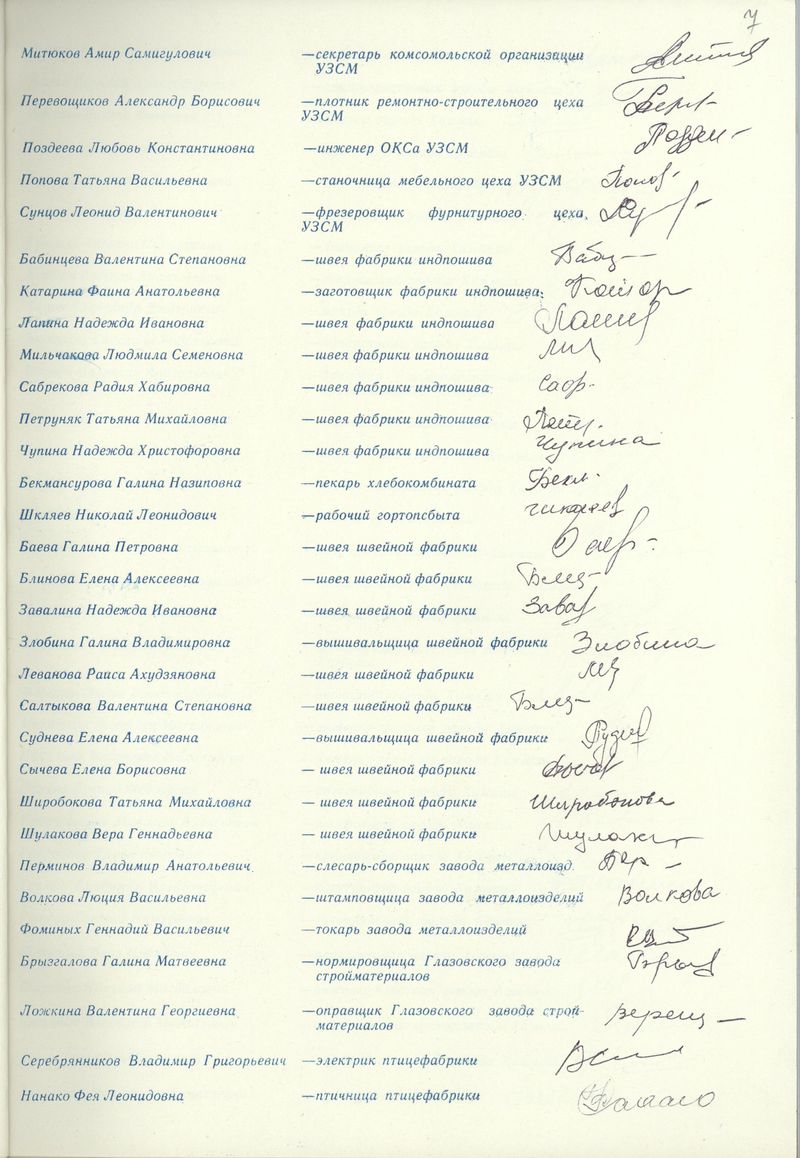 7
Митюков Амир Самигулович —секретарь комсомольской организации
УЗСМ
Перевощиков Александр Борисович —плотник ремонтно-строительного цеха
УЗСМ
Поздеева Любовь Константиновна —инженер ОКСа УЗСМ
Попова Татьяна Васильевна —станочница мебельного цеха УЗСМ
Сунцов Леонид Валентинович —фрезеровщик фурнитурного цеха,
УЗСМ
Бабинцева Валентина Степановна —швея фабрики индпошива
Катарина Фаина Анатольевна —заготовщик фабрики индпошива
Лапина Надежда Ивановна —швея фабрики индпошива
Мильчакова Людмила Семеновна —швея фабрики индпошива
Сабрекова Радия Хабировна —швея фабрики индпошива
Петруняк Татьяна Михайловна —швея фабрики индпошива
Чупина Надежда Христофоровна —швея фабрики индпошива Чупина
Бекмансурова Галина Назиповна —пекарь хлебокомбината
Шкляев Николай Леонидович —рабочий гортопсбыта
Баева Галина Петровна —швея швейной фабрики
Блинова Елена Алексеевна —швея швейной фабрики
Завалина Надежда Ивановна —швея швейной фабрики
Злобина Галина Владимировна —вышивальщица швейной фабрики Злобина
Леванова Раиса Ахудзяновна —швея швейной фабрики
Салтыкова Валентина Степановна —швея швейной фабрики
Суднева Елена Алексеевна —вышивальщица швейной фабрики
Сычева Елена Борисовна — швея швейной фабрики
Широбокова Татьяна Михайловна — швея швейной фабрики Широбокова
Шулакова Вера Геннадьевна — швея швейной фабрики
Перминов Владимир Анатольевич —слесарь-сборщик завода металлоизд.
Волкова Люция Васильевна —штамповщица завода металлоизделий Волкова
Фоминых Геннадий Васильевич —токарь завода металлоизделий
Брызгалова Галина Матвеевна —нормировщица Глазовского завода
стройматериалов
Ложкина Валентина Георгиевна —оправщик Глазовского завода строй-
материалов
Серебрянников Владимир Григорьевич —электрик птицефабрики
Нанако Фея Леонидовна —птичница птицефабрики